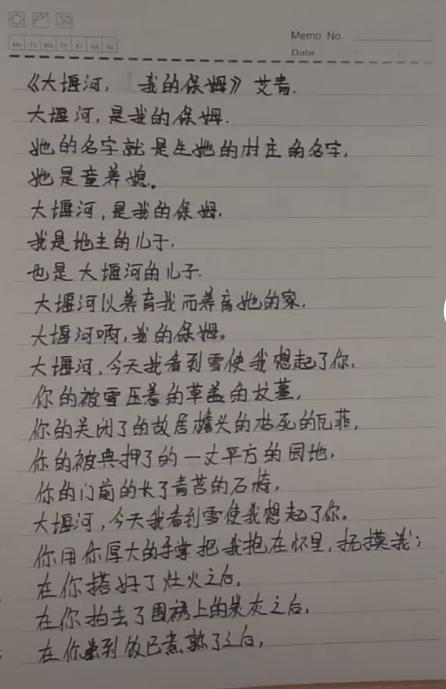 Memo No.
Date
Mo Tu We Th Fr Sa Su
《大堰河, 我的保姆》艾青.
大堰河,是我的保姆.
她的名字就是生她的村庄的名字,
她是童养媳。
大堰河,是我的保姆.
我是地主的儿子.
也是大堰河的儿子.
大堰河以养育我而养育她的家,
大堰河啊,我的保姆。
大堰河,今天我看到雪使我想起了你,
你的被雪压着的草盖的坟墓,
你的关闭了的故居檐头的枯死的瓦菲,
你的被典押了的一丈平方的园地,
你的门前的长了青苔的石椅,
大堰河,今天我看到雪使我想起了你。
你用你厚大的手掌把我抱在怀里,抚摸我;
在你搭好了灶火之后,
在你拍去了围裙上的炭灰之后,
在你尝到饭已煮熟了之后,